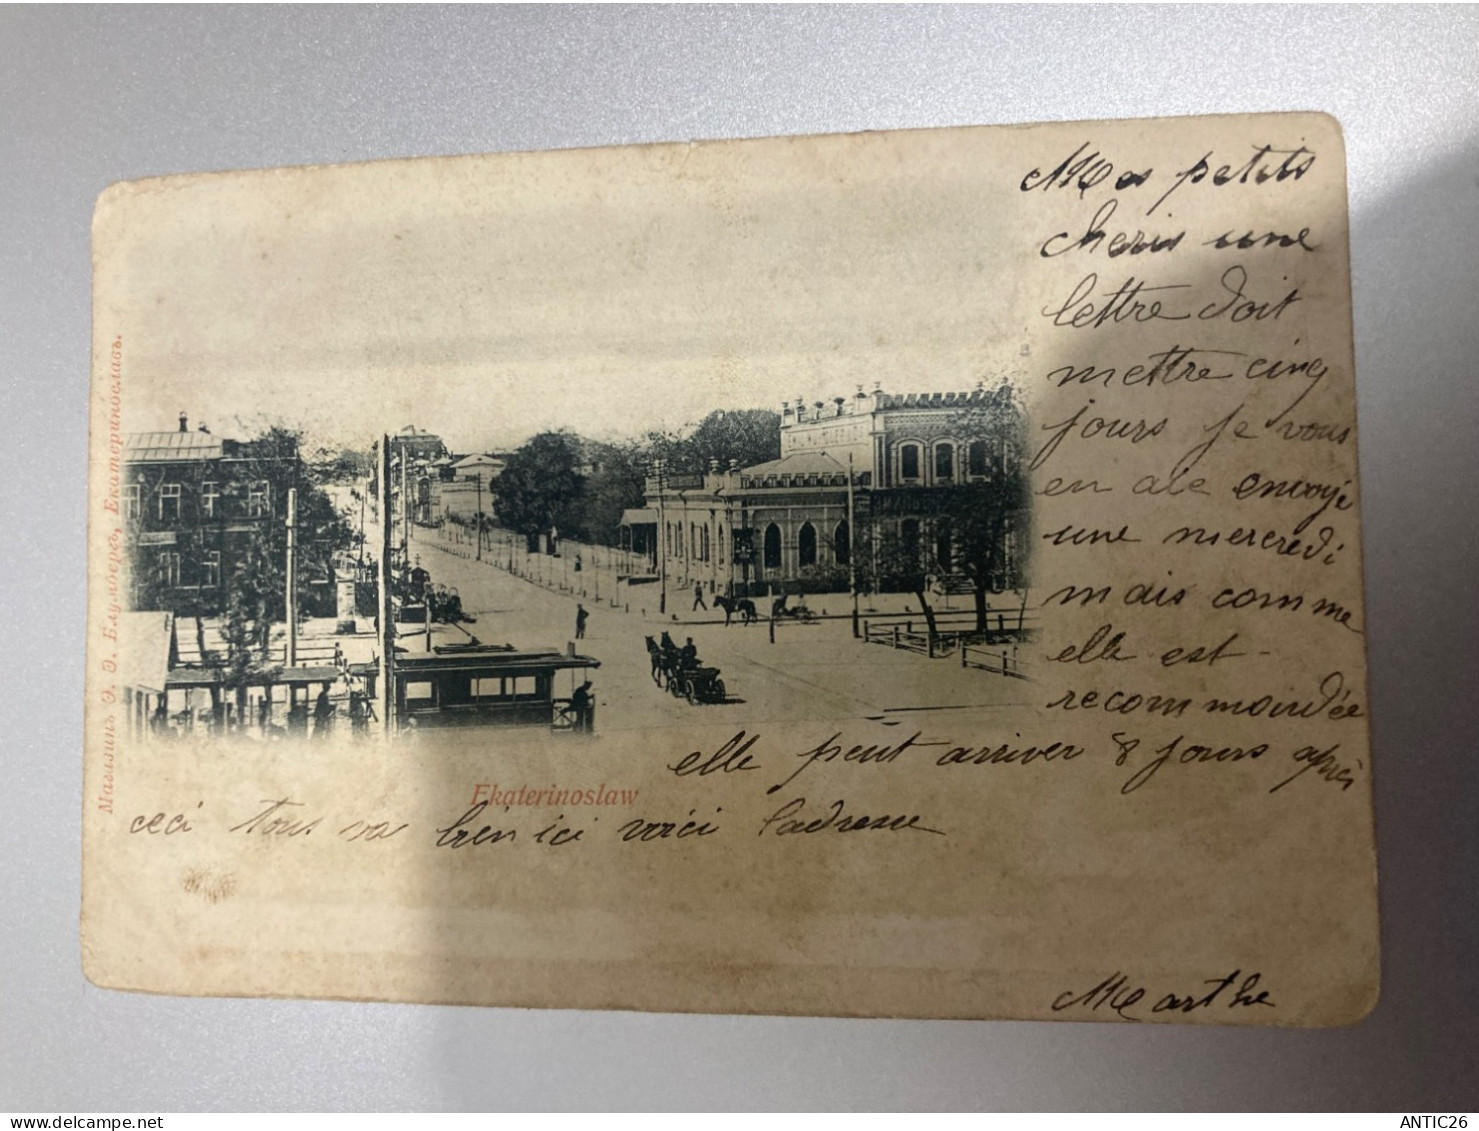 Mes petits
cheris une
lettre doit
mettre cinq
jours je vous
en aie envoyé
une mercredi
mais comme
elle est
recommondée
elle peut arriver 8 jours après
ceci tous va bien ici voici l'adresse
Marthe
Ekaterinoslaw
Магазинъ Э. Э. Блумбергъ, Екатеринославъ.
www.delcampe.net
ANTIC26